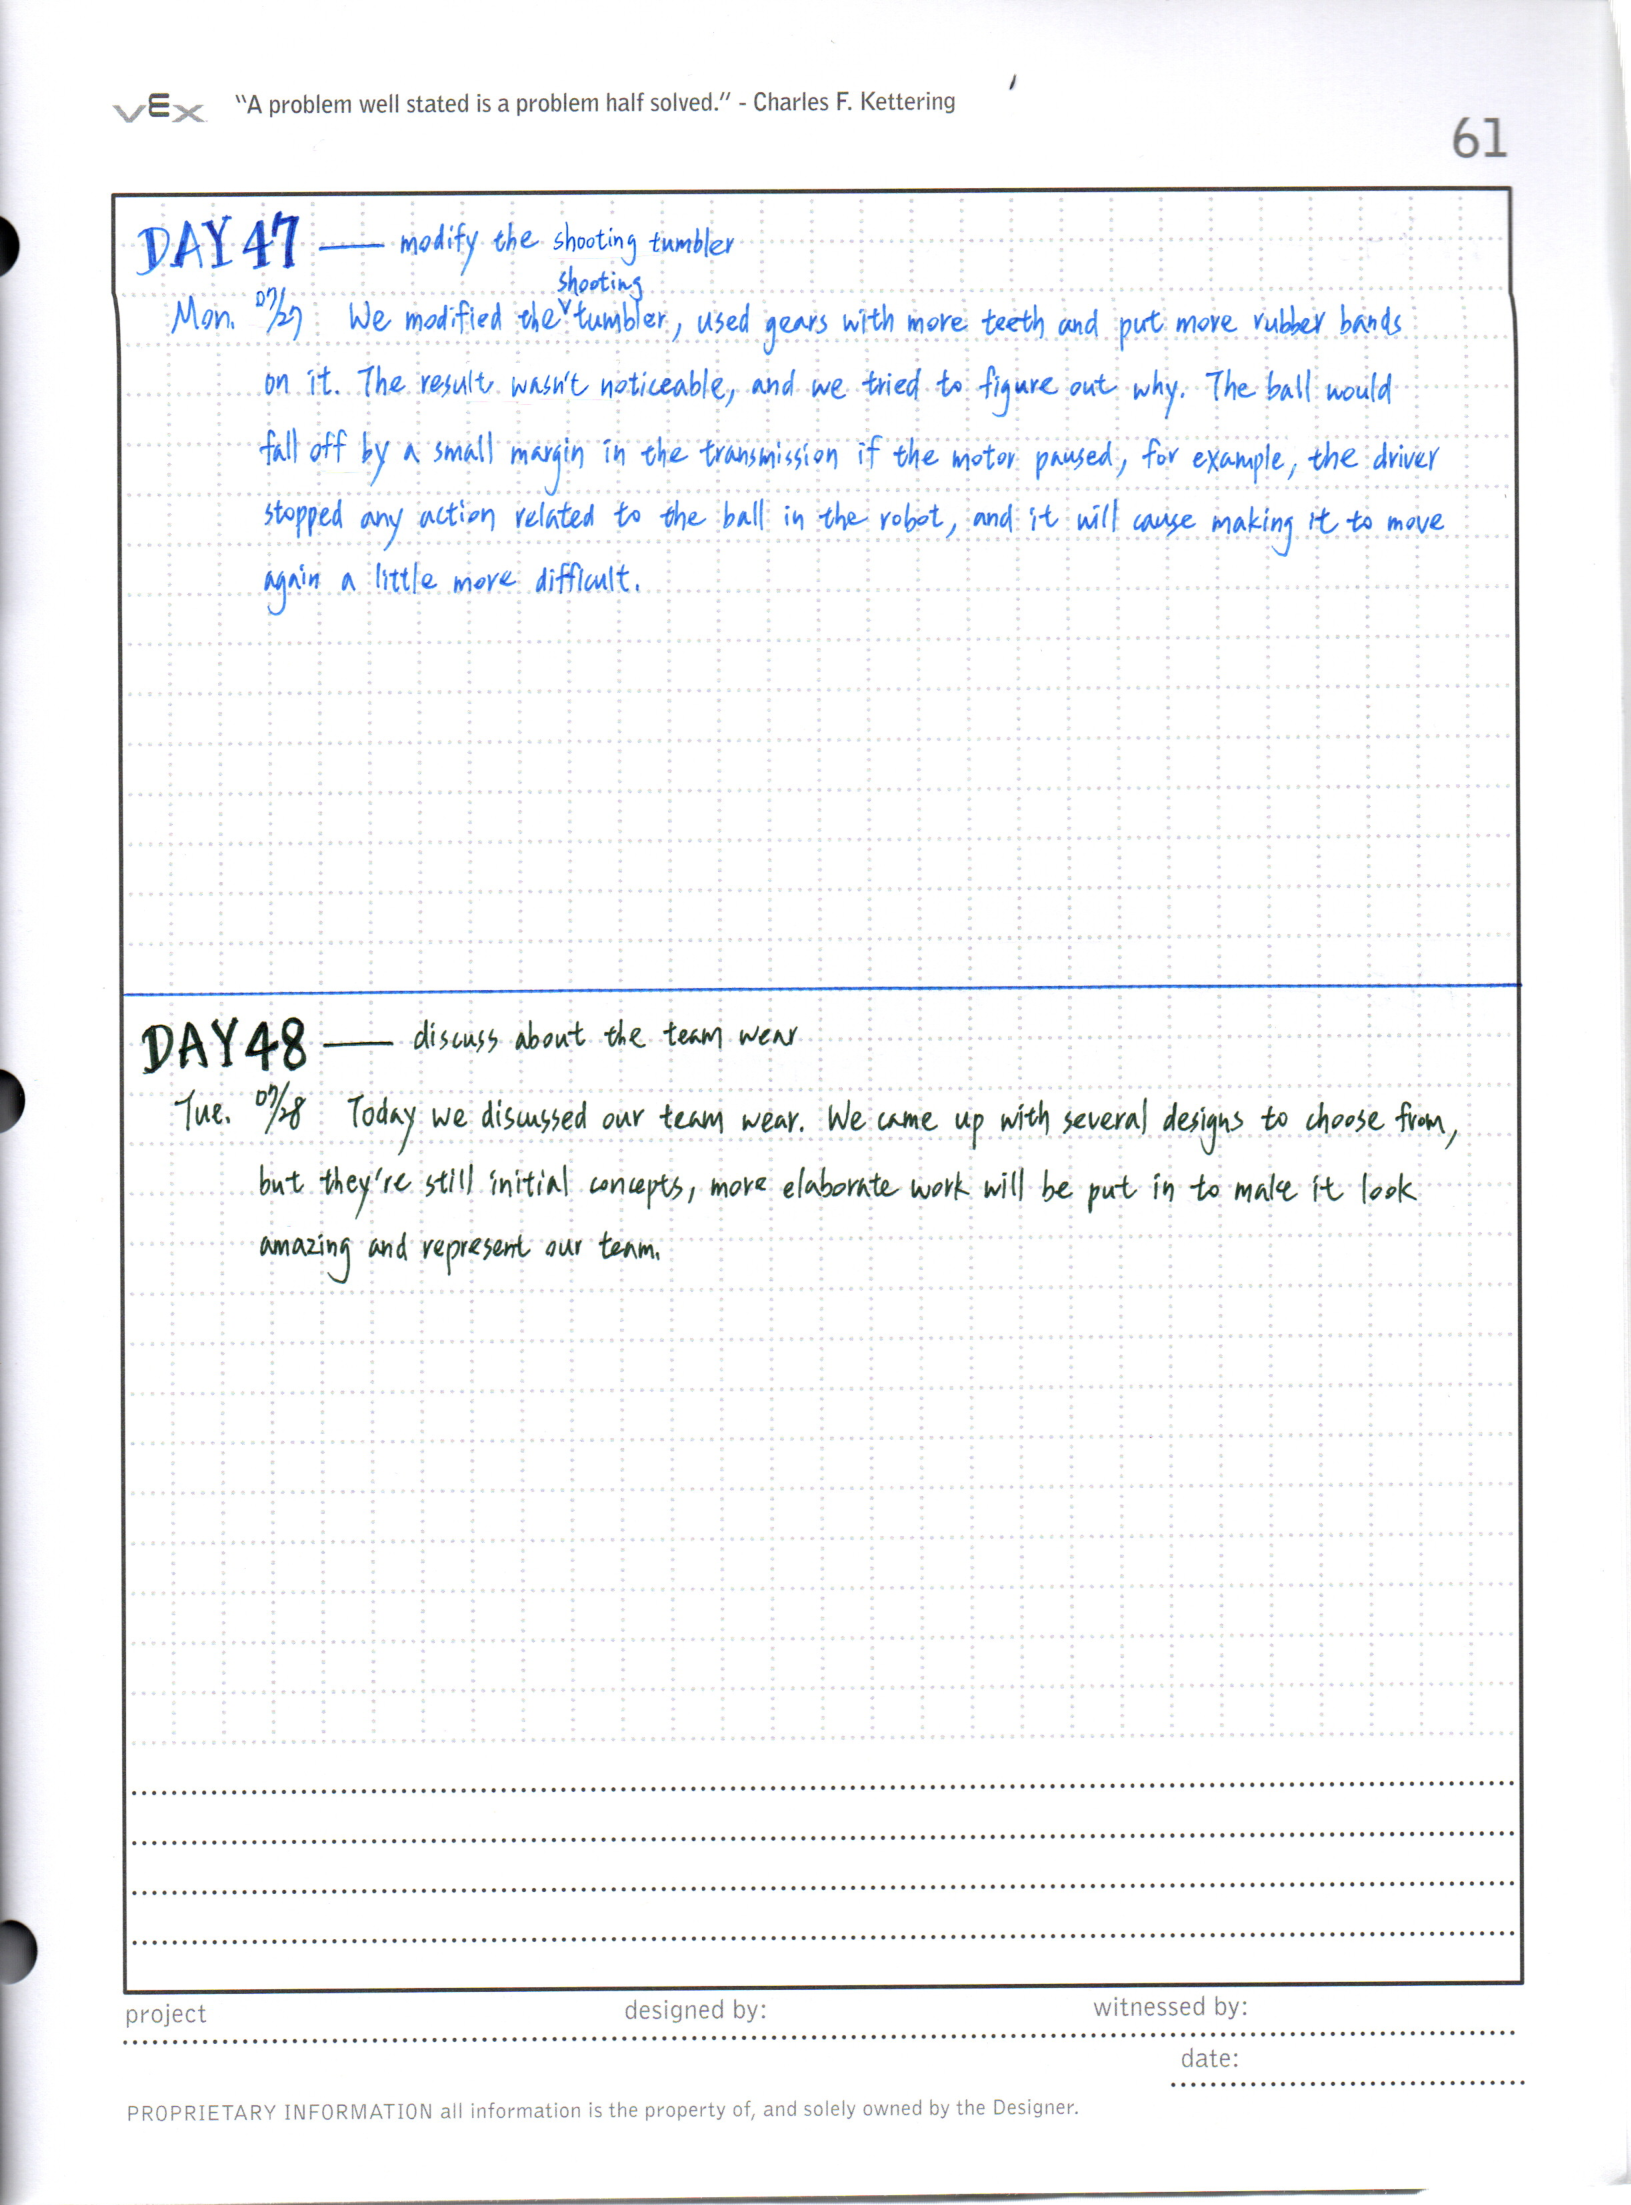 VEX "A problem well stated is a problem half solved." - Charles F. Kettering
61
DAY 47 — modify the shooting tumbler
shooting
Mon. 07/27 We modified the ˅ tumbler, used gears with more teeth and put more rubber bands
on it. The result wasn't noticeable, and we tried to figure out why. The ball would
fall off by a small margin in the transmission if the motor paused, for example, the driver
stopped any action related to the ball in the robot, and it will cause making it to move
again a little more difficult.
DAY 48 — discuss about the team wear
Tue. 07/28 Today we discussed our team wear. We came up with several designs to choose from,
but they're still initial concepts, more elaborate work will be put in to make it look
amazing and represent our team.
project designed by: witnessed by:
date:
PROPRIETARY INFORMATION all information is the property of, and solely owned by the Designer.